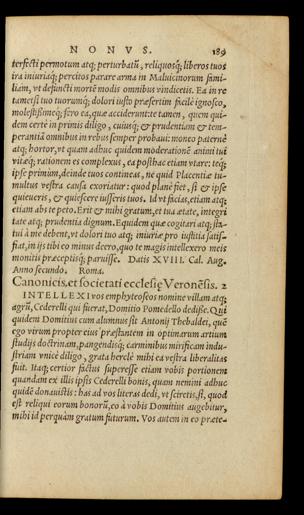 NONVS. 189
terfecti permotum atq; perturbatū, reliquosq; liberos tuos
ira iniuriaq; percitos parare arma in Maluicinorum fami-
liam, vt defuncti mortē modis omnibus vindicetis. Ea in re
tametsi tuo tuorumq; dolori iusto præsertim facilè ignosco,
molestißimeq; fero ea, quæ acciderunt: te tamen, quem qui-
dem certè in primis diligo, cuiusq; & prudentiam & tem-
perantiā omnibus in rebus semper probaui: moneo paternè
atq; hortor, vt quam adhuc quidem moderationē animi tui
vitæq; rationem es complexus, ea posthac etiam vtare: teq;
ipse primùm, deinde tuos contineas, ne quid Placentiæ tu-
multus vestra causa exoriatur: quod planè fiet, si & ipse
quieueris, & quiescere iusseris tuos. Id vt facias, etiam atq;
etiam abs te peto. Erit & mihi gratum, et tua ætate, integri
tate atq; prudentia dignum. Equidem quæ cogitari atq; sta-
tui à me debent, vt dolori tuo atq; iniuriæ pro iustitia satis-
fiat, in ijs tibi eo minus deero, quo te magis intellexero meis
monitis præceptisq; paruisse. Datis XVIII. Cal. Aug.
Anno secundo. Roma.
Canonicis, et societati ecclesię Veronēsis. 2
INTELLEXI vos emphyteoseos nomine villam atq;
agrū, Cederelli qui fuerat, Domitio Pomedello dedisse. Qui
quidem Domitius cum alumnus sit Antonij Thebaldei, quē
ego virum propter eius præstantem in optimarum artium
studijs doctrinam, pangendisq; carminibus mirificam indu-
striam vnicè diligo, grata herclè mihi ea vestra liberalitas
fuit. Itaq; certior factus superesse etiam vobis portionem
quandam ex illis ipsis Cederelli bonis, quam nemini adhuc
quidē donauistis: has ad vos literas dedi, vt sciretis, si, quod
est reliqui eorum bonorū, eo à vobis Domitius augebitur,
mihi id perquàm gratum futurum. Vos autem in eo præte-